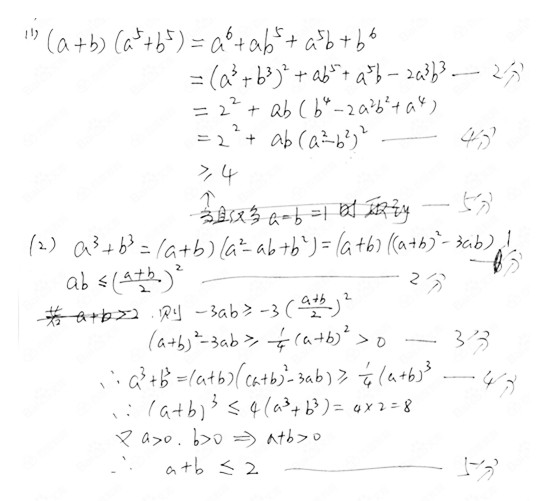 (1) (a+b)(a⁵+b⁵)=a⁶+ab⁵+a⁵b+b⁶
=(a³+b³)²+ab⁵+a⁵b-2a³b³ — 2分
=2²+ab(b⁴-2a²b²+a⁴)
=2²+ab(a²-b²)² — 4分
≥4
↑
当且仅当a=b=1时取 — 5分
(2) a³+b³=(a+b)(a²-ab+b²)=(a+b)((a+b)²-3ab) — 1分
ab≤((a+b)/2)² — 2分
若a+b>2.则 -3ab≥-3((a+b)/2)²
(a+b)²-3ab≥¼(a+b)²>0 — 3分
∴a³+b³=(a+b)((a+b)²-3ab)≥¼(a+b)³ — 4分
∴(a+b)³≤4(a³+b³)=4×2=8
又a>0.b>0⇒a+b>0
∴a+b≤2 — 5分